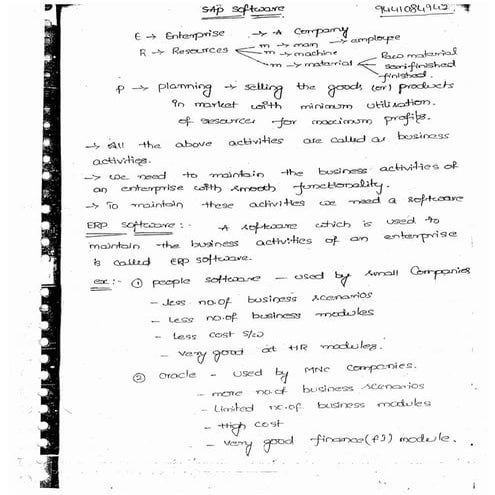 SAP Software. 9441084942
E → Enterprise → A Company
R → Resources m → man → employee
m → machine
m → material Raw material
semifinished
finished.
P → planning → selling the goods (or) products
in market with minimum utilisation.
of resources for maximum profits.
→ All the above activities are called as business
activities.
→ We need to maintain the business activities of
an enterprise with smooth functionality.
→ To maintain these activities we need a software
ERP Software:- A software which is used to
maintain the business activities of an enterprise
is called ERP software.
ex:- ① people software - used by small Companies
- less no.of business scenarios
- Less no.of business modules
- Less cost s/w
- very good at HR modules.
② Oracle - used by MNC Companies.
- more no.of business scenarios
- Limited no.of business modules
- High cost
- very good finance(FI) module.